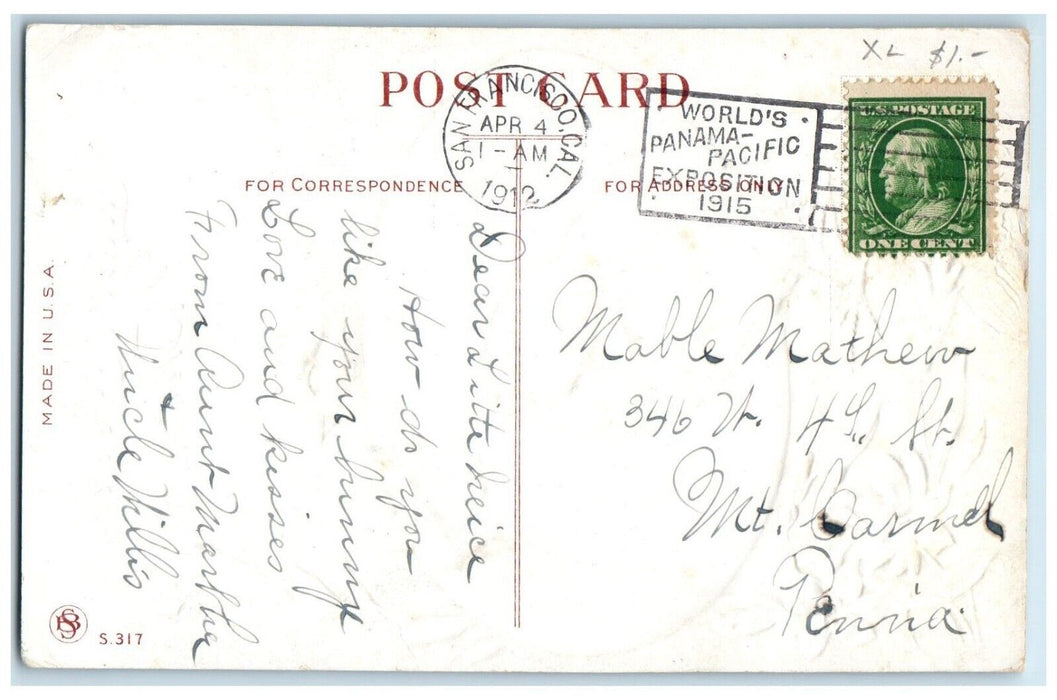 XL $1.-
POST CARD
SAN FRANCISCO, CAL.
APR 4
1-AM
1912
WORLD'S
PANAMA-
PACIFIC
EXPOSITION
1915
U.S. POSTAGE
ONE CENT
FOR CORRESPONDENCE
FOR ADDRESS ONLY
Dear Litte neice
How do you
like your bunny
Love and kisses
From Aunt Martha
+
Uncle Willis
Mable Mathew
346 W. 4th St.
Mt. Carmel
Penna.
MADE IN U.S.A.
S.317